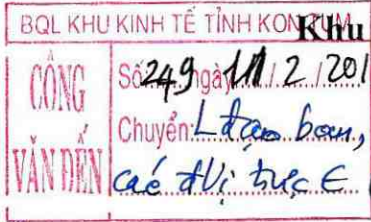 BQL KHU KINH TẾ TỈNH KON TUM
Khu
CÔNG VĂN ĐẾN
Số: 249 ngày 11/2/201
Chuyển: L đạo ban,
các đVị trực